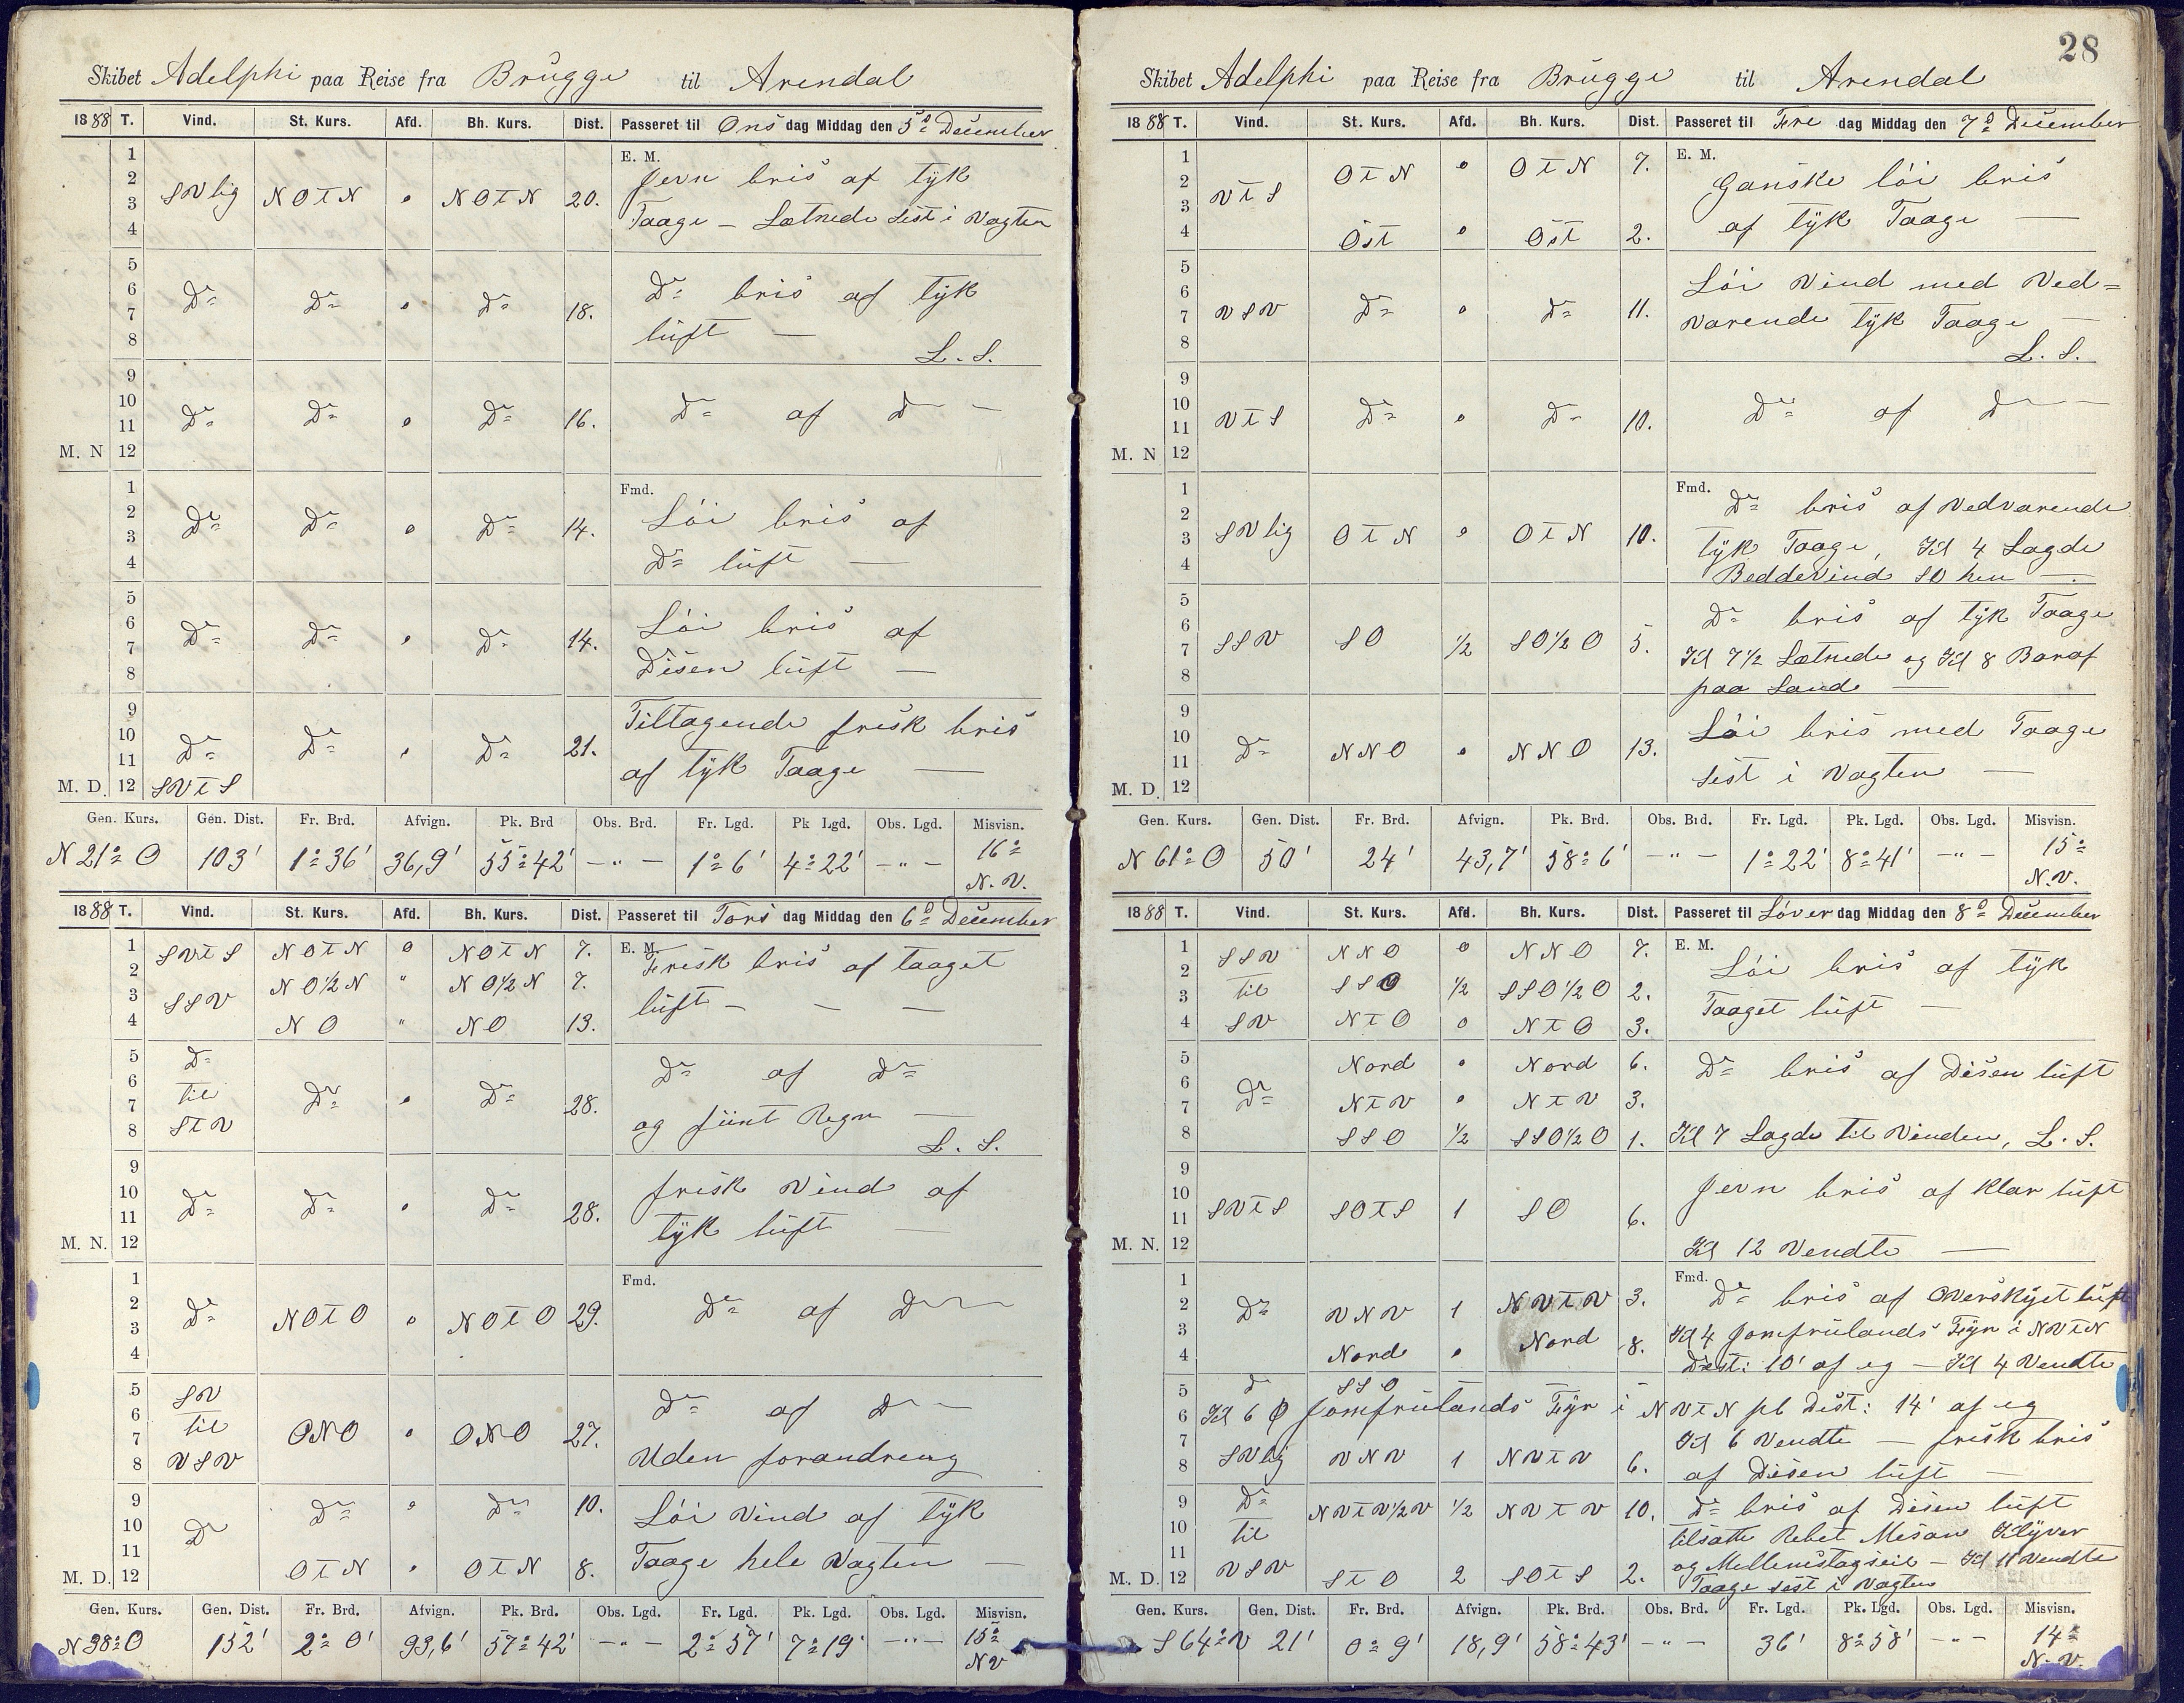 Skibet Adelphi paa Reise fra Brügge til Arendal
1888 T. Vind. St. Kurs. Afd. Bh. Kurs. Dist. Passeret til Ons dag Middag den 5te December
1 E. M.
2 Jevn bris af tyk
3 SVlig NOtN 0 NOtN 20. Taage – Letnede sist i Vagten
4
5
6 Do Do 0 Do bris af tyk
7 Do 18. lüft —
8 L. S.
9
10 Do Do 0 Do 16. Do af D —
11
M. N 12
1 Fmd.
2 Do Do 0 Do 14. Löi bris af
3
4 Do lüft —
5
6 Do Do 0 Do 14. Löi bris af
7
8 Disen lüft —
9 Tiltagende frisk bris
10 Do Do 0 Do 21.
11 af tyk Taage —
M. D. 12 SVtS
Gen. Kurs. Gen. Dist. Fr. Brd. Afvign. Pk. Brd Obs. Brd. Fr. Lgd. Pk Lgd. Obs. Lgd. Misvisn.
N 21° O 103' 1° 36' 36,9' 55° 42' – " – 1° 6' 4° 22' – " – 16° N. V.
1888 T. Vind. St. Kurs. Afd. Bh. Kurs. Dist. Passeret til Tors dag Middag den 6te December
1 SVtS NOtN 0 NOtN 7. E. M. Frisk bris af taaget
2 NO½N " NO½N 7.
3 SSV lüft – – –
4 NO " NO 13.
5 Do
6 til Do 0 Do 28. Do af Do
7 og fiint Regn —
8 StV L. S.
9
10 Do Do 0 Do 28. frisk Vind af
11 tyk lüft —
M. N. 12
1 Fmd.
2 Do NOtO 0 NOtO 29. Do af D
3
4
5 SV
6 til ONO 0 ONO 27. Do af D
7
8 VSV Uden forandring
9 Do 0 Do 10. Löi Vind af tyk
10 Do
11 Taage hele Vagten —
M. D. 12 OtN 0 OtN 8.
Gen. Kurs. Gen. Dist. Fr. Brd. Afvign. Pk. Brd. Obs. Lgd. Fr. Lgd. Pk. Lgd. Obs. Lgd. Misvisn.
N 38° O 152' 2° 0' 93,6' 57° 42' – " – 2° 57' 7° 19' – " – 15° NV
28
Skibet Adelphi paa Reise fra Brügge til Arendal
1888 T. Vind. St. Kurs. Afd. Bh. Kurs. Dist. Passeret til Fre dag Middag den 7de December
1 OtN 0 OtN 7. E. M.
2 VtS Ganske löi bris
3
4 Öst 0 Öst 2. af tyk Taage —
5 Löi Vind med Ved=
6 VSV Do 0 Do 11.
7 varende tyk Taage —
8 L. S.
9
10 VtS Do 0 Do 10. Do af D
11
M. N 12
1 Fmd. Do bris af Vedvarende
2 SVlig OtN 0 OtN 10.
3 tyk Taage, Kl 4 Lagde
4 Beddevind SO hen —
5 Do bris af tyk Taage
6 SSV SO ½ SO½O 5.
7 Kl 7½ Letnede og Kl 8 Baraf
8 paa Lande —
9 Löi bris med Taage
10 Do NNO 0 NNO 13.
11 sist i Vagten —
M. D. 12
Gen. Kurs. Gen. Dist. Fr. Brd. Afvign. Pk. Brd. Obs. Brd. Fr. Lgd. Pk. Lgd. Obs. Lgd. Misvisn.
N 61° O 50' 24' 43,7' 58° 6' – " – 1° 22' 8° 41' – " – 15° N.V.
1888 T. Vind. St. Kurs. Afd. Bh. Kurs. Dist. Passeret til Löver dag Middag den 8de December
1 SSV NNO 0 NNO 7. E. M.
2 til SSO ½ SSO½O 2. Löi bris af tyk
3
4 SV NtO 0 NtO 3. Taaget lüft —
5 Nord 0 Nord 6. Do bris af Disen lüft
6 Do
7 NtV 0 NtV 3.
8 SSO ½ SSO½O 1. Kl 7 Lagde til Vinden, L. S.
9
10 SVtS SOtS 1 SO 6. Jevn bris af Klar lüft
11
M. N. 12 Kl 12 Vendte —
1 Fmd.
2 Do VNV 1 NVtV 3. Do bris af Overskyet lüft
3 Kl 4 Jomfrulands Fyr i NVtN
4 Nord 0 Nord 8. Dist: 10' af eg – Kl 4 Vendte
5 Do SSO
6 Kl 6 Ø Jomfrulands Fyr i NVtN pb Dist: 14' af eg
7 Kl 6 Vendte — frisk bris
8 SVlig VNV 1 NVtV 6. af Disen lüft —
9 Do NVtV½V ½ NVtV 10. Do bris af Disen lüft
10 til tilsatte Rebet Mesan Klyver
11 og Mellemstagseil – Kl 11 Vendte
M. D. 12 VSV StO 2 SOtS 2. Taage sist i Vagten
Gen. Kurs. Gen. Dist. Fr. Brd. Afvign. Pk. Brd. Obs. Brd. Fr. Lgd. Pk. Lgd. Obs. Lgd. Misvisn.
S 64° V 21' 0° 9' 18,9' 58° 43' – " – 36' 8° 58' – " – 14° N. V.